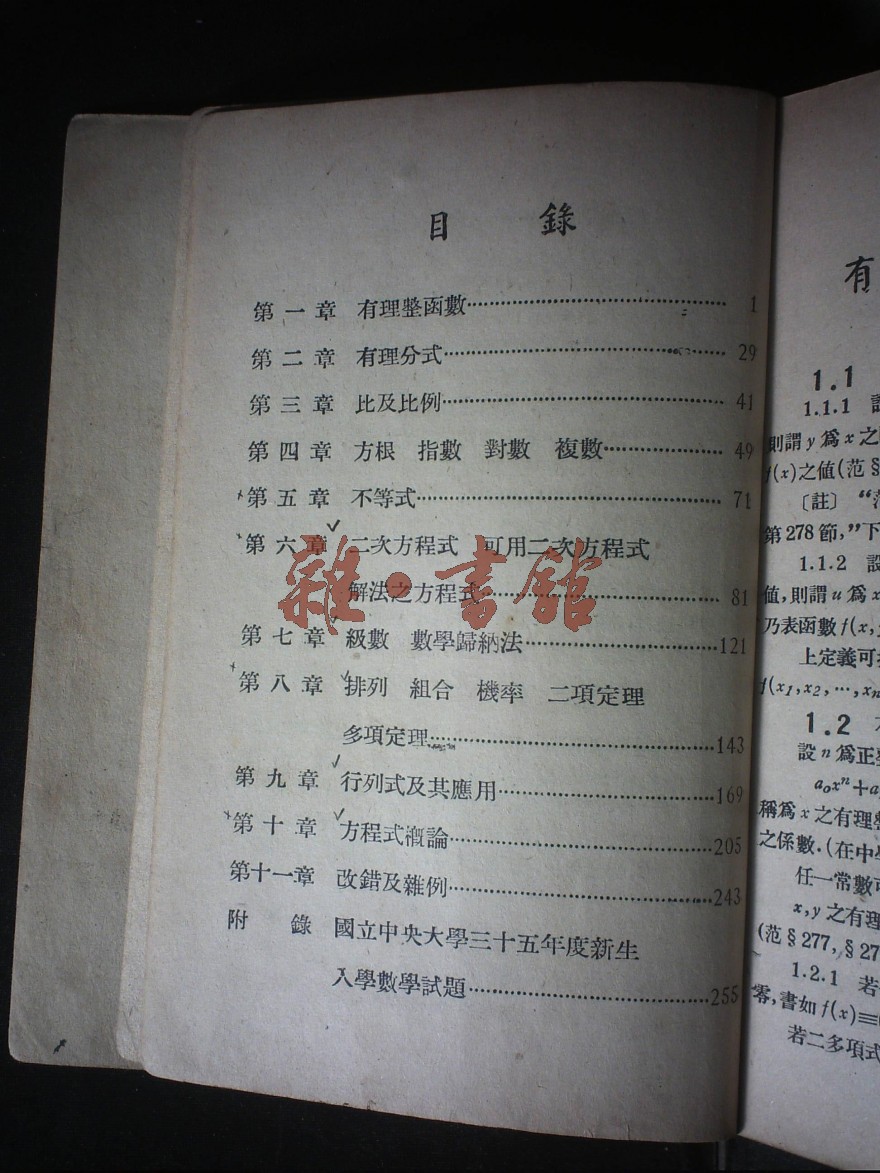 目 錄
第一章 有理整函數 1
第二章 有理分式 29
第三章 比及比例 41
第四章 方根 指數 對數 複數 49
第五章 不等式 71
第六章 二次方程式 可用二次方程式
解法之方程式 81
第七章 級數 數學歸納法 121
第八章 排列 組合 機率 二項定理
多項定理 143
第九章 行列式及其應用 169
第十章 方程式槪論 205
第十一章 改錯及雜例 243
附 錄 國立中央大學三十五年度新生
入學數學試題 255
雜·書館
有
1.1
1.1.1
則謂 y 爲 x 之
f(x)之值(范§
〔註〕 “范
第278節,”下
1.1.2 設
值,則謂 u 爲 x
乃表函數 f(x,
上定義可
f(x₁,x₂,…,xₙ
1.2
設 n 爲正
a₀xⁿ+a
稱爲 x 之有理整
之係數.(在中
任一常數可
x,y 之有理
(范§277,§27
1.2.1 若
零,書如 f(x)≡
若二多項式